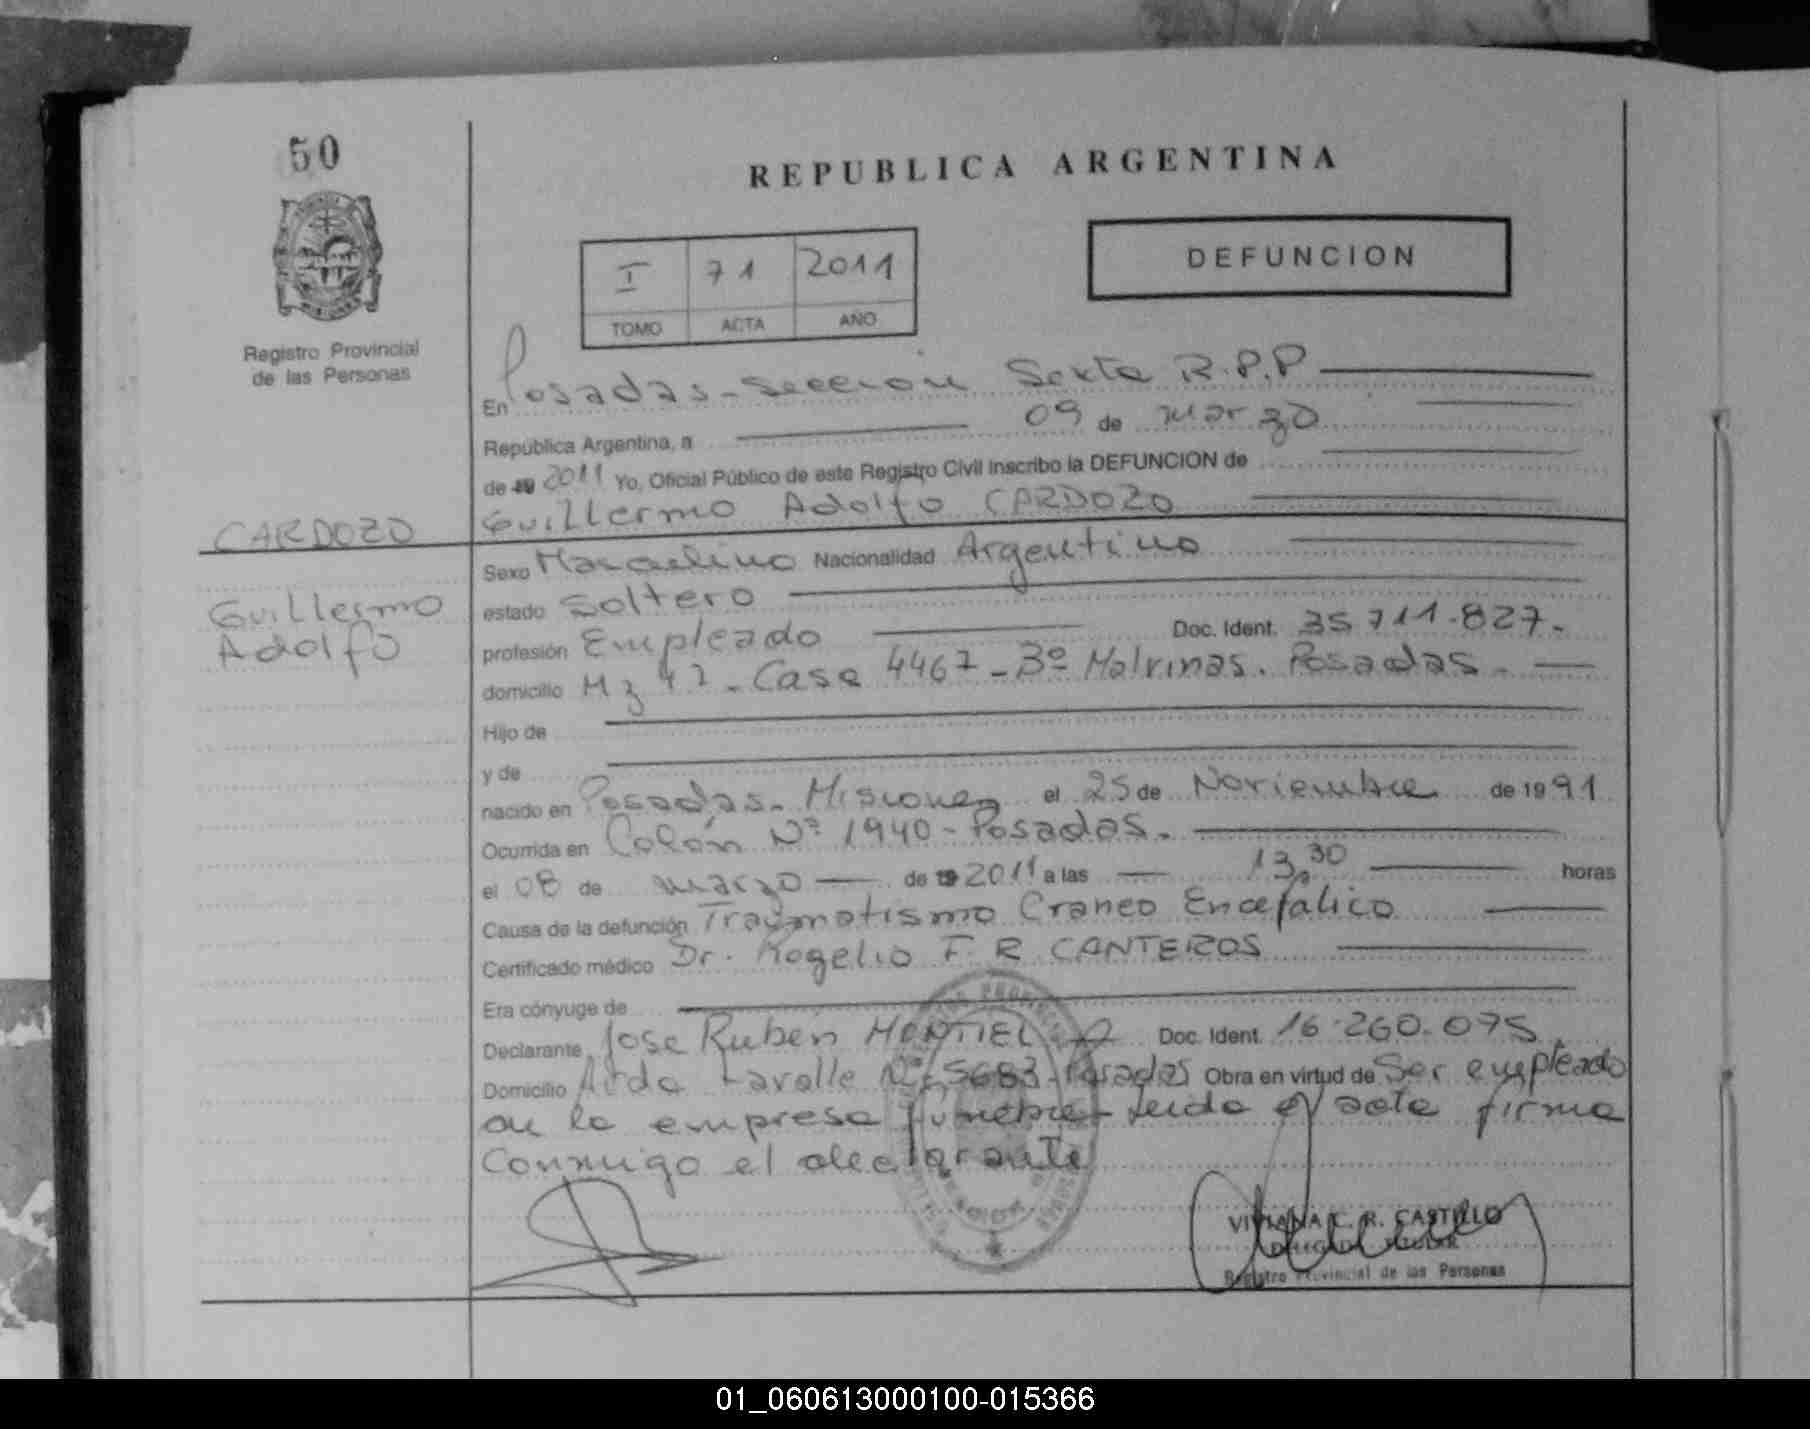 50
REPUBLICA ARGENTINA
I 71 2011
TOMO ACTA AÑO
DEFUNCION
Registro Provincial
de las Personas
En Posadas - Sección Sexta R.P.P
República Argentina, a 09 de marzo
de 19 2011 Yo, Oficial Público de este Registro Civil inscribo la DEFUNCION de
Guillermo Adolfo CARDOZO
CARDOZO
Guillermo
Adolfo
Sexo Masculino Nacionalidad Argentino
estado Soltero
profesión Empleado Doc. Ident. 35.711.827.-
domicilio Mz 42 - Casa 4467 - Bº Malvinas. Posadas.
Hijo de
y de
nacido en Posadas. Misiones el 25 de Noviembre de 1991
Ocurrida en Colón Nº 1940 - Posadas.
el 08 de marzo de 19 2011 a las 13,30 horas
Causa de la defunción Traumatismo Craneo Encefalico
Certificado médico Dr. Rogelio F. R CANTEROS
Era cónyuge de
Declarante Jose Ruben MONTIEL Doc. Ident. 16.260.075
Domicilio Avda Lavalle Nº 5683 - Posadas Obra en virtud de Ser empleado
de la empresa fúnebre - Leida el acta firma
Conmigo el declarante
VIVIANA C. R. CASTILLO
DELEGADA TITULAR
Registro Provincial de las Personas
01_060613000100-015366